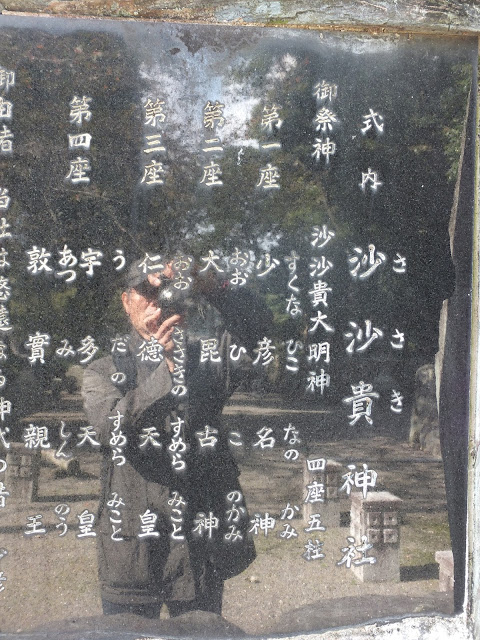 式内 沙沙貴神社
さ さ き
御祭神 沙沙貴大明神 四座五柱
第一座 少彦名神
すくな ひこ なの かみ
第二座 大毘古神
おお ひ こ のかみ
第三座 仁徳天皇
おお ささきの すめら みこと
宇多天皇
う だの すめら みこと
第四座 敦實親王
あつ み しん のう
御由者 当社は悠遠なる神代の昔